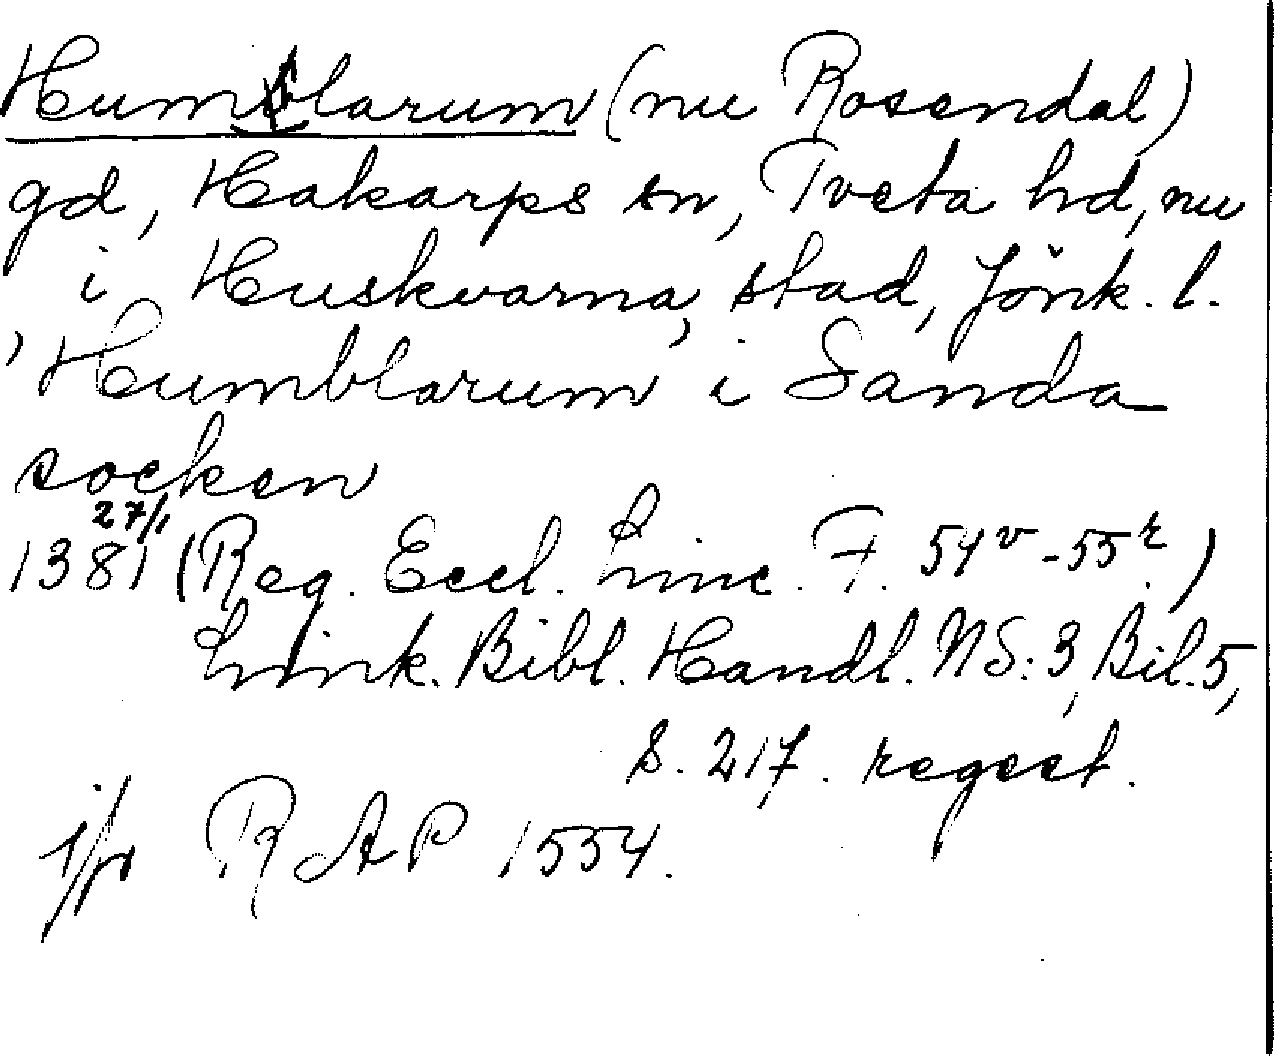 Humblarum (nu Rosendal)
gd, Hakarps sn, Tveta hd, nu
i Huskvarna, stad, Jönk. l.
'Humblarum' i Sanda
socken
27/1
1381 (Reg. Eccl. Linc. F. 54v-55r.)
Link. Bibl. Handl. NS: 3, Bil. 5,
S. 217. regest.
RAP 1554.